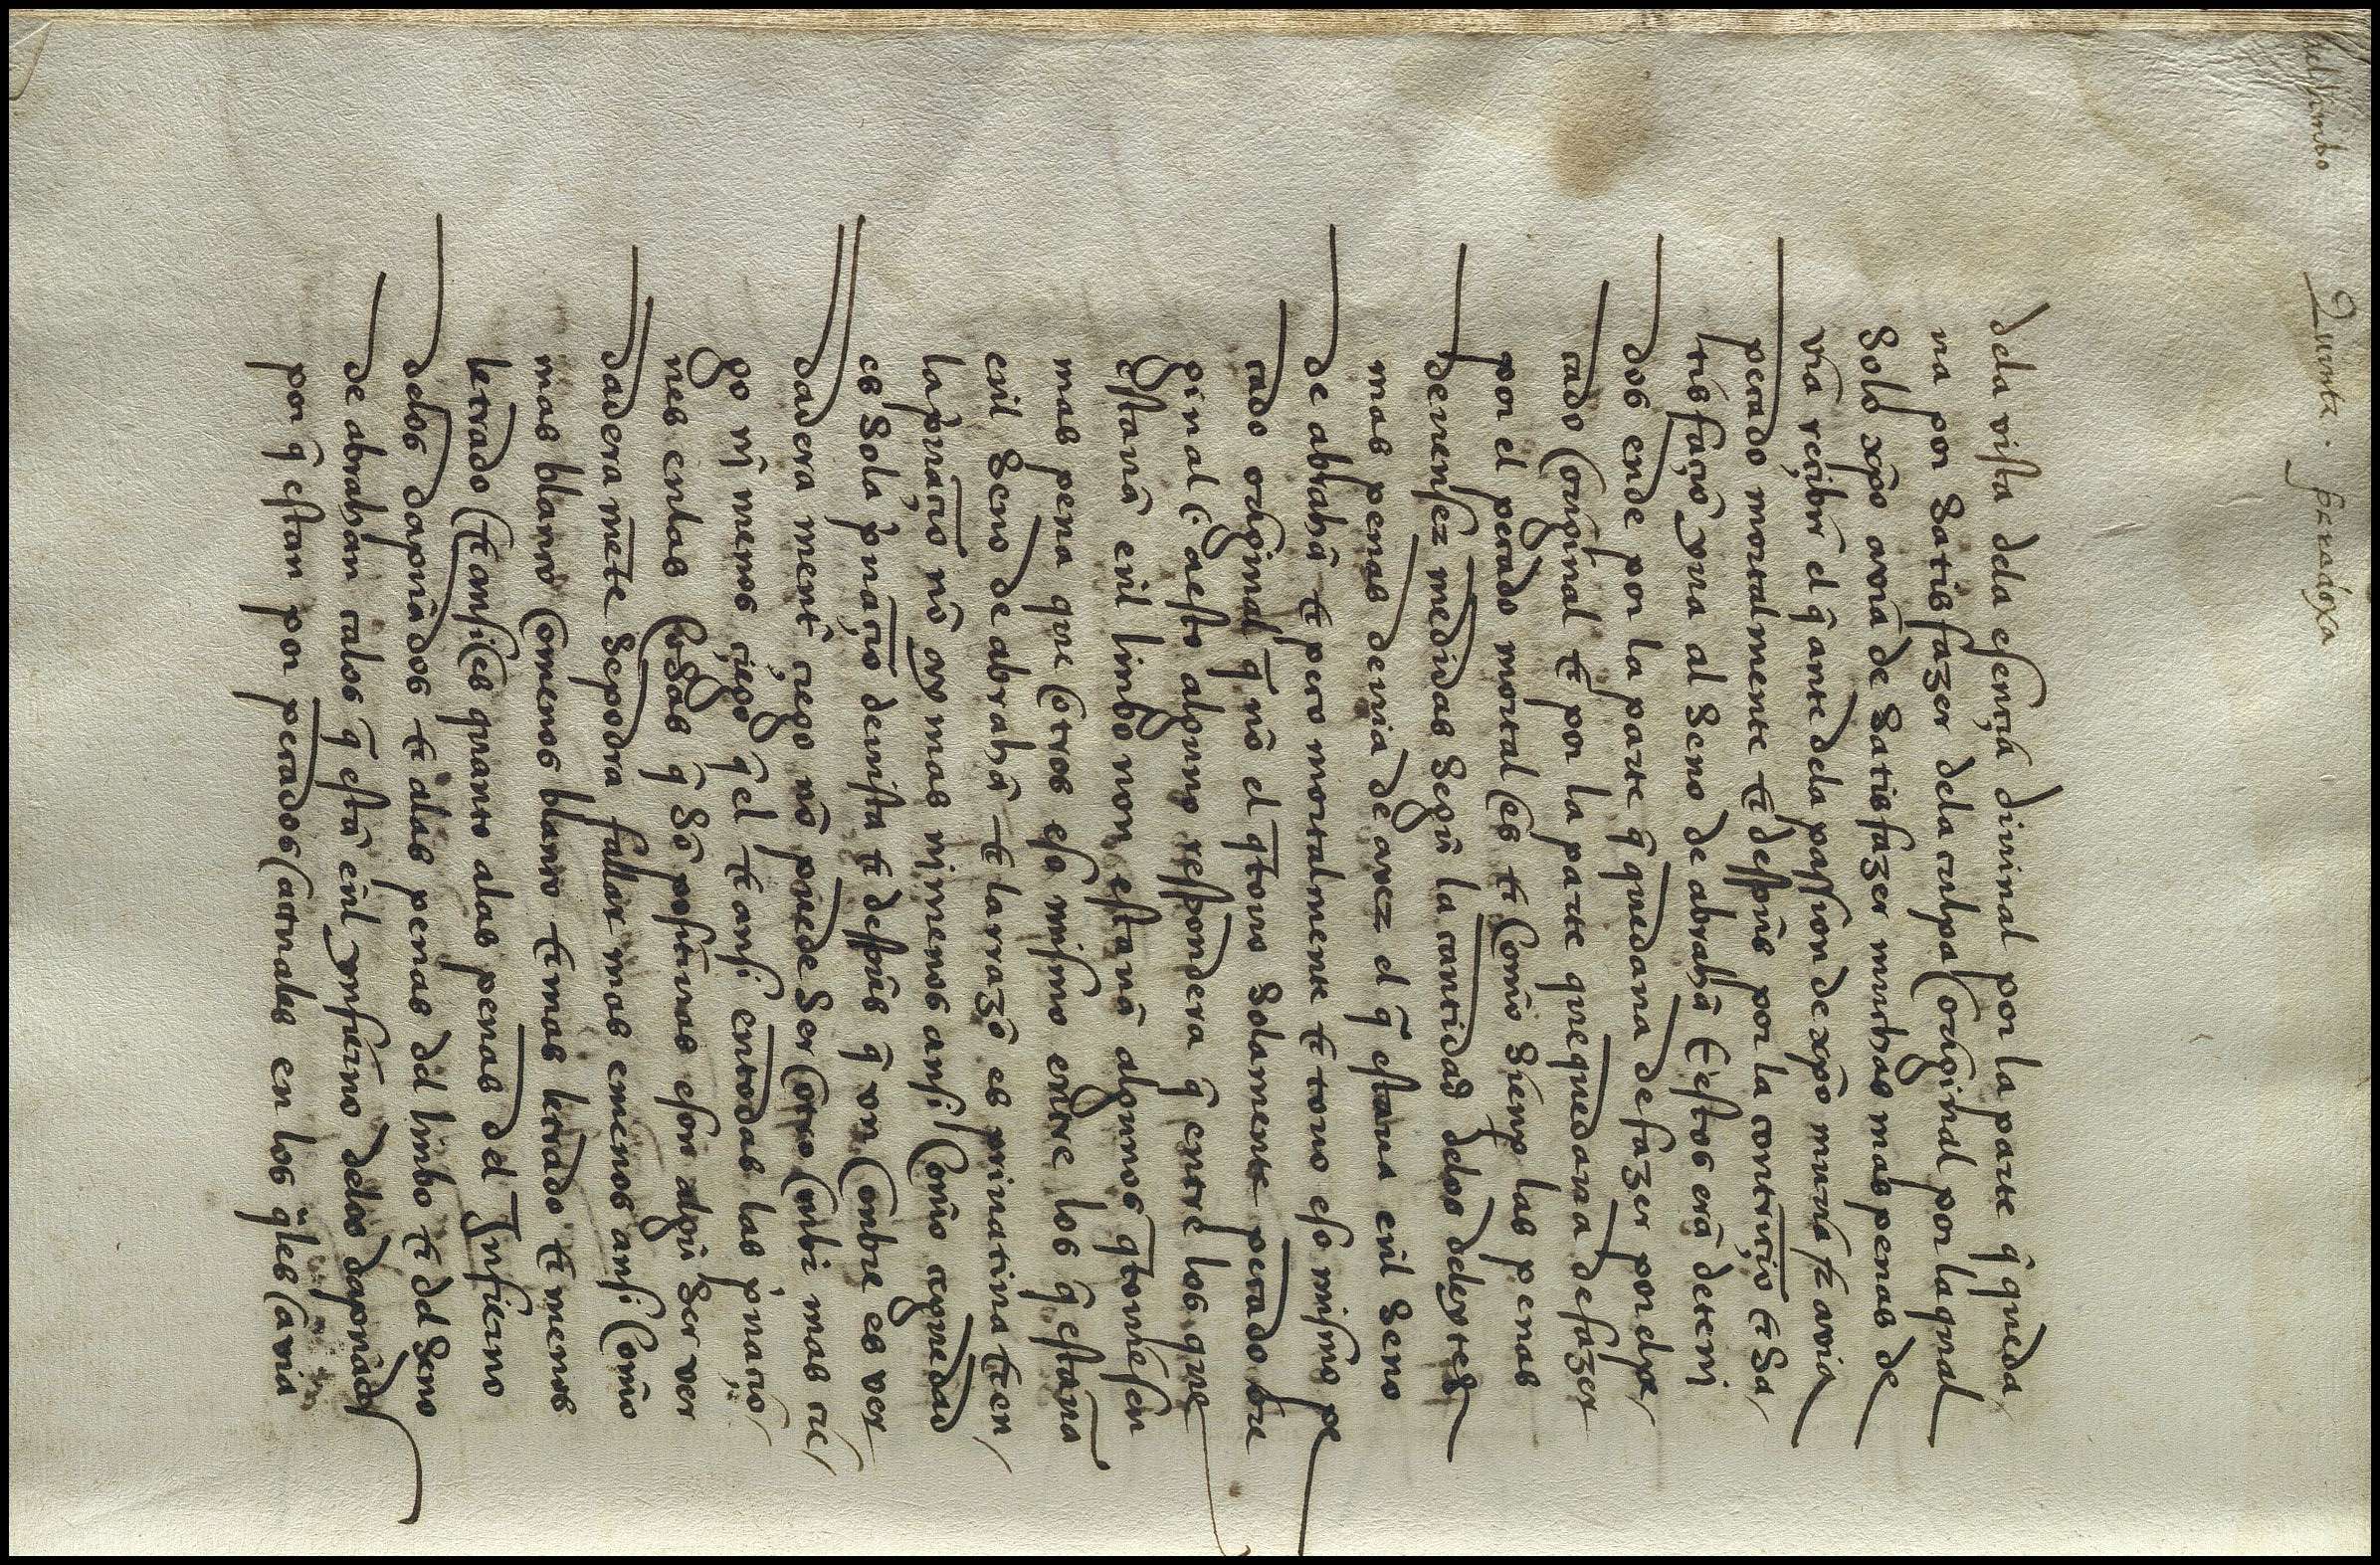 del limbo
Quinta. paradoxa
dela vista dela esençia diuinal por la parte q̄ queda
ua por satisfazer dela culpa original por la qual
solo xp̄o auia de satisfazer muchas mas penas de
uia reçibir el q̄ ante dela passion de xp̄o muria τ auia
pecado mortalmente τ despūs por la contriçiō τ sa
tisfaçiō yua al seno de abrahā τ estos erā deteni
dos ende por la parte q̄ quedaua de fazer por el pe
cado original τ por la parte que quedaua de fazer
por el pecado mortal es τ como sienp̄ las penas
deuen ser medidas segū la cantidad delos deleytes
mas penas deuia de auer el q̄ estaua enl seno
de abrahā τ peco mortalmente τ touo eso mismo pe
cado original q̄ nō el q̄ touo solamente pecado ori
ginal aesto alguno respondera q̄ entre los que
estauā enl limbo non estauā algunos q̄ touiesen
mas pena que otros eso mismo entre los q̄ estauā
enl seno de abrahā τ la razō es priuatiua τ en
la priuaciō nō ay mas nj menos ansi como çeguedad
es sola priuaçiō de vista τ despūs q̄ vn onbre es ver
dadera mentē çiego nō puede ser otro onbre mas çie
go nj menos çiego q̄ el τ ansi en todas las priuaciō
nes en las cosas q̄ sō positiuas eso algū ser ver
dadera mēte se podra fallar mas o menos ansi como
mas blanco o menos blanco τ mas letrado τ menos
letrado τ ansi es quanto alas penas del Infierno
delos dapnādos τ alas penas dl limbo τ dl seno
de abrahan ca los q̄ estā enl ynfierno delos dapnādos
por q̄ estan por pecados actuales en los q̄les auia